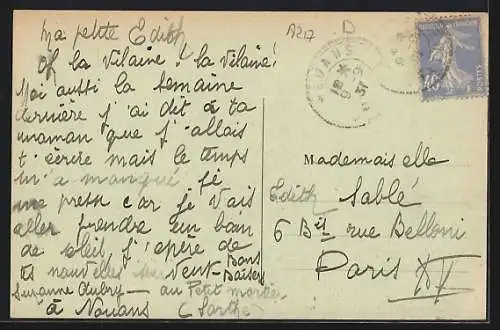 Ma petite Edith
Oh la vilaine! la vilaine!
Moi aussi la semaine
dernière j'ai dit à ta
maman que j'allais
t'écrire mais le temps
m'a manqué je
me presse car je vais
aller prendre un bain
de soleil, j'espere de
tes nouvelles Bons
Baisers
Suzanne au Petit mortier
à Nouans (Sarthe)
A217
D
NOUANS
18 *
9-9
31
40
POSTES
Mademoiselle
Edith Sablé
6 Bis rue Belloni
Paris XV